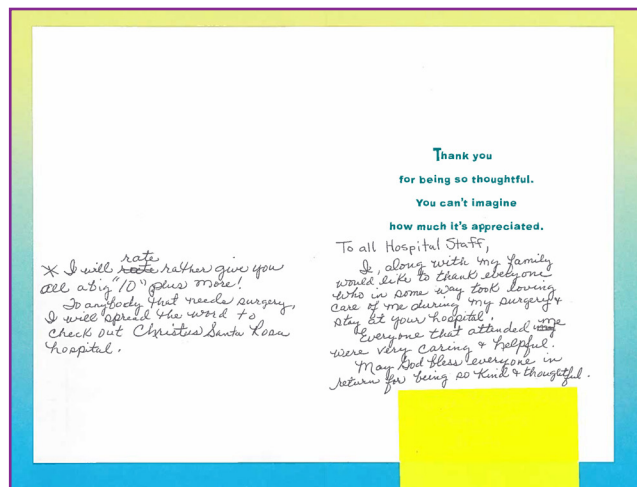 rate
* I will rate rather give you
all a big "10" plus more!
To anybody that needs surgery,
I will spread the word to
check out Christus Santa Rosa
hospital.
Thank you
for being so thoughtful.
You can't imagine
how much it's appreciated.
To all Hospital Staff,
I, along with my family
would like to thank everyone
who in some way took loving
care of me during my surgery &
stay at your hospital.
Everyone that attended me
were very caring & helpful.
May God bless everyone in
return for being so kind & thoughtful.